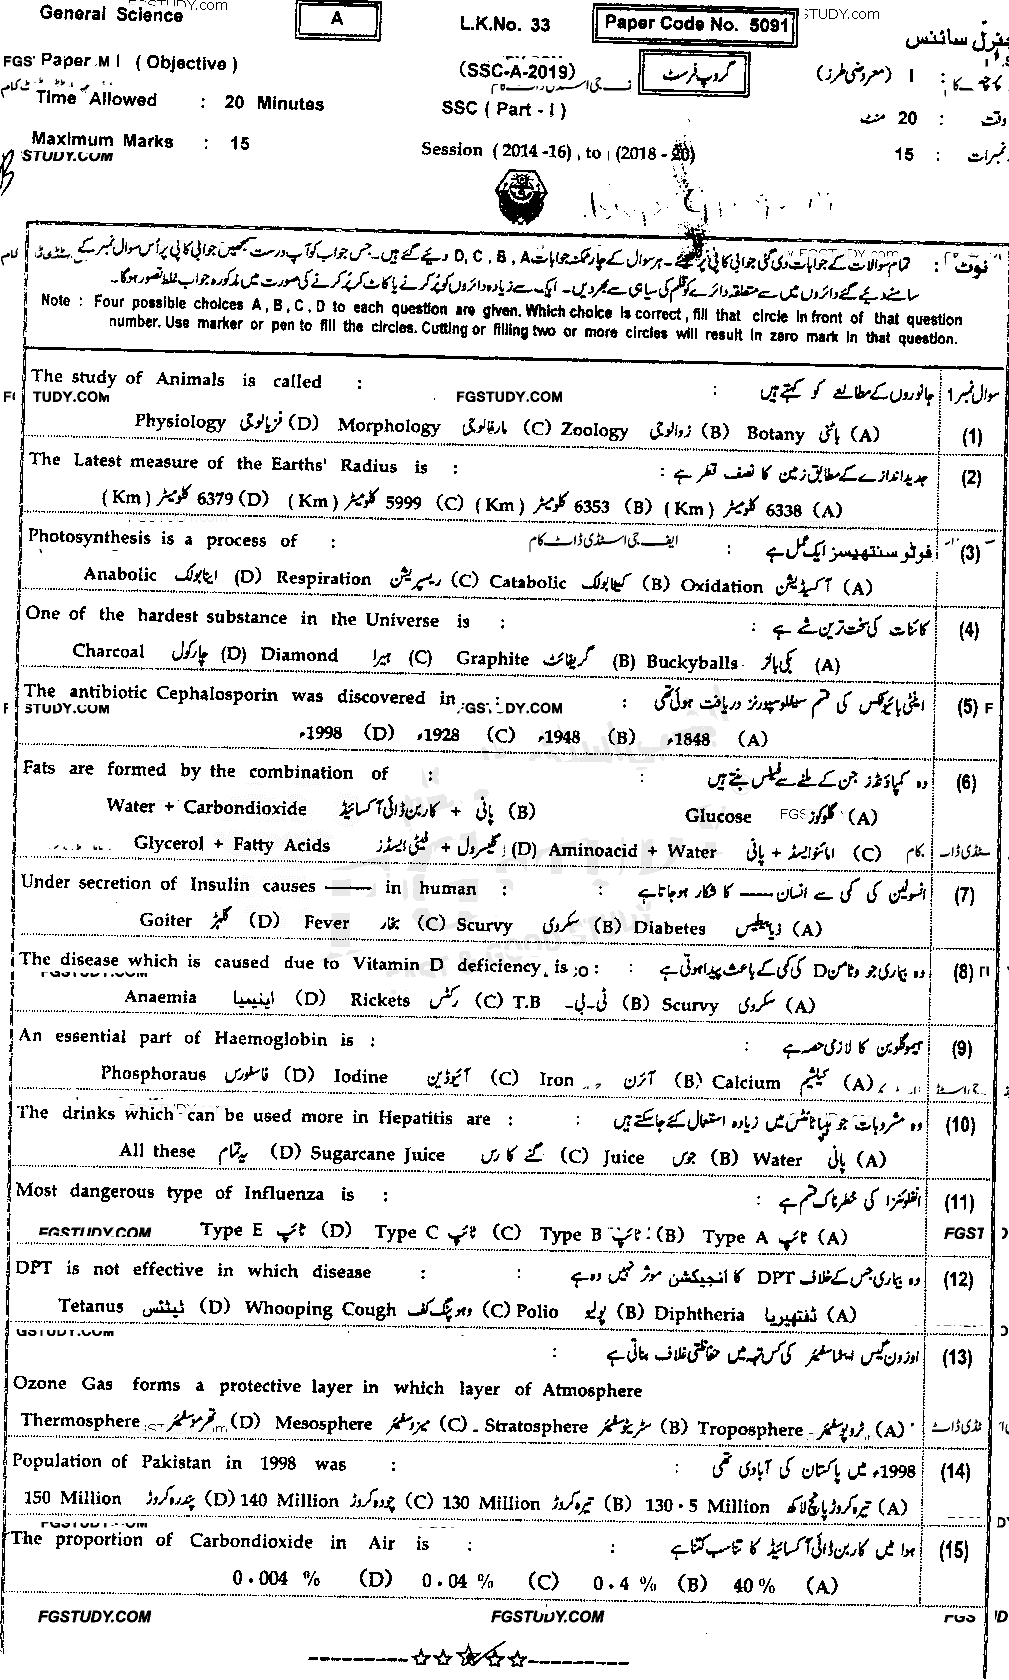 General Science
A
L.K.No. 33
Paper Code No. 5091
STUDY.com
جنرل سائنس
Paper I ( Objective )
(SSC-A-2019)
گروپ فرسٹ
I (معروضی طرز)
Time Allowed : 20 Minutes
SSC ( Part - I )
وقت : 20 منٹ
Maximum Marks : 15
Session ( 2014 -16) , to (2018 - 20)
نمبرات : 15
STUDY.COM
نوٹ : تمام سوالات کے جوابات دی گئی جوابی کاپی پر لکھئے۔ ہر سوال کے چار ممکنہ جوابات D, C, B, A دیے گئے ہیں۔ جس جواب کو آپ درست سمجھیں جوابی کاپی پر اُس سوال نمبر کے
سامنے دیے گئے دائروں میں سے متعلقہ دائرے کو قلم کی سیاہی سے بھر دیں۔ ایک سے زیادہ دائروں کو پُر کرنے یا کاٹ کر پُر کرنے کی صورت میں مذکورہ جواب غلط تصور ہوگا۔
Note : Four possible choices A , B , C , D to each question are given. Which choice is correct , fill that circle in front of that question
number. Use marker or pen to fill the circles. Cutting or filling two or more circles will result in zero mark in that question.
The study of Animals is called : : جانوروں کے مطالعے کو کہتے ہیں سوال نمبر 1
TUDY.COM FGSTUDY.COM
Physiology فزیالوجی (D) Morphology مارفالوجی (C) Zoology زوالوجی (B) Botany باٹنی (A) (1)
The Latest measure of the Earths' Radius is : : جدید اندازے کے مطابق زمین کا نصف قطر ہے (2)
(Km) کلومیٹر 6379 (D) (Km) کلومیٹر 5999 (C) (Km) کلومیٹر 6353 (B) (Km) کلومیٹر 6338 (A)
Photosynthesis is a process of : ایف جی اسٹڈی ڈاٹ کام : فوٹو سنتھیسز ایک عمل ہے (3)
Anabolic اینابولک (D) Respiration ریسپریشن (C) Catabolic کیٹابولک (B) Oxidation آکسیڈیشن (A)
One of the hardest substance in the Universe is : : کائنات کی سخت ترین شے ہے (4)
Charcoal چارکول (D) Diamond ہیرا (C) Graphite گریفائٹ (B) Buckyballs بکی بالز (A)
The antibiotic Cephalosporin was discovered in : : اینٹی بائیوٹکس کی قسم سیفلوسپورنز دریافت ہوئی تھی (5)
STUDY.COM
1998ء (D) 1928ء (C) 1948ء (B) 1848ء (A)
Fats are formed by the combination of : : وہ کمپاؤنڈز جن کے ملنے سے فیٹس بنتے ہیں (6)
Water + Carbondioxide پانی + کاربن ڈائی آکسائیڈ (B) Glucose گلوکوز (A)
Glycerol + Fatty Acids گلیسرول + فیٹی ایسڈز (D) Aminoacid + Water امائنوایسڈ + پانی (C)
Under secretion of Insulin causes —— in human : : انسولین کی کمی سے انسان —— کا شکار ہو جاتا ہے (7)
Goiter گلہڑ (D) Fever بخار (C) Scurvy سکروی (B) Diabetes ذیابیطس (A)
The disease which is caused due to Vitamin D deficiency is : : وہ بیماری جو وٹامن D کی کمی کے باعث پیدا ہوتی ہے (8)
FGSTUDY.COM
Anaemia اینیمیا (D) Rickets رکٹس (C) T.B ٹی۔بی۔ (B) Scurvy سکروی (A)
An essential part of Haemoglobin is : : ہیموگلوبن کا لازمی حصہ ہے (9)
Phosphoraus فاسفورس (D) Iodine آئیوڈین (C) Iron آئرن (B) Calcium کیلشیم (A)
The drinks which can be used more in Hepatitis are : : وہ مشروبات جو ہیپاٹائٹس میں زیادہ استعمال کئے جاسکتے ہیں (10)
All these یہ تمام (D) Sugarcane Juice گنے کا رس (C) Juice جوس (B) Water پانی (A)
Most dangerous type of Influenza is : : انفلوئنزا کی خطرناک قسم ہے (11)
FGSTUDY.COM Type E ٹائپ (D) Type C ٹائپ (C) Type B ٹائپ (B) Type A ٹائپ (A)
DPT is not effective in which disease : : وہ بیماری جس کے خلاف DPT کا انجیکشن موثر نہیں وہ ہے (12)
Tetanus ٹیٹنس (D) Whooping Cough وہوپنگ کف (C) Polio پولیو (B) Diphtheria ڈفتھیریا (A)
GSTUDY.COM
: اوزون گیس ایٹماسفیئر کی کس تہہ میں حفاظتی غلاف بناتی ہے (13)
Ozone Gas forms a protective layer in which layer of Atmosphere
Thermosphere تھرموسفیئر (D) Mesosphere میزوسفیئر (C) Stratosphere سٹریٹوسفیئر (B) Troposphere ٹروپوسفیئر (A)
Population of Pakistan in 1998 was : : 1998ء میں پاکستان کی آبادی تھی (14)
150 Million پندرہ کروڑ (D) 140 Million چودہ کروڑ (C) 130 Million تیرہ کروڑ (B) 130.5 Million تیرہ کروڑ پانچ لاکھ (A)
FGSTUDY.COM
The proportion of Carbondioxide in Air is : : ہوا میں کاربن ڈائی آکسائیڈ کا تناسب کتنا ہے (15)
0.004 % (D) 0.04 % (C) 0.4 % (B) 40 % (A)
FGSTUDY.COM FGSTUDY.COM